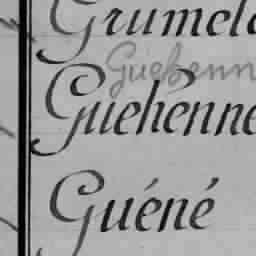 Grumel
Guehenn
Guehenne
Guéné